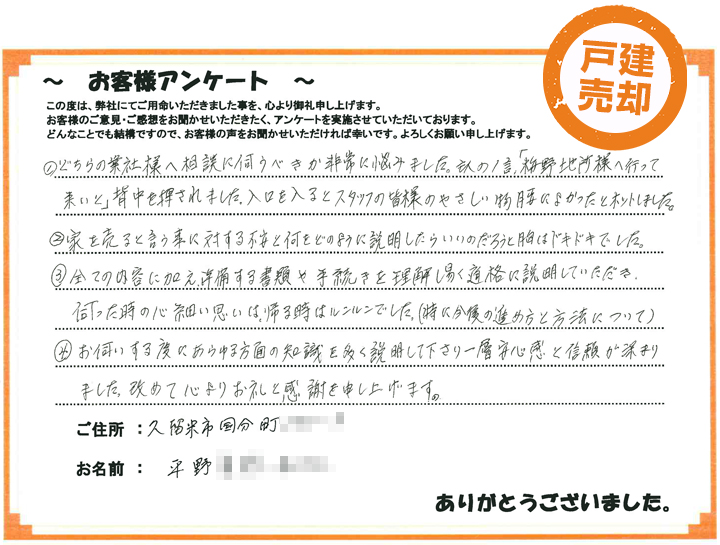 戸建
売却
～ お客様アンケート ～
この度は、弊社にてご用命いただきました事を、心より御礼申し上げます。
お客様のご意見・ご感想をお聞かせいただきたく、アンケートを実施させていただいております。
どんなことでも結構ですので、お客様の声をお聞かせいただければ幸いです。よろしくお願い申し上げます。
①どちらの業社様へ相談に伺うべきか非常に悩みました。友の1言、「梅野地所様へ行って
来いと」背中を押されました。入口を入るとスタッフの皆様のやさしい物腰によかったとホットしました。
②家を売ると言う事に対する不安と何をどのように説明したらいいのだろうと胸はドキドキでした。
③全ての内容に加え、準備する書類や手続きを理解し易く適格に説明していただき、
伺った時の心細い思いは、帰る時はルンルンでした。(特に今後の進め方と方法について)
④お伺いする度にあらゆる方面の知識を多く説明して下さり一層安心感と信頼が深まり
ました。改めて心よりお礼と感謝を申し上げます。
ご住所 ： 久留米市国分町
お名前 ： 平野
ありがとうございました。